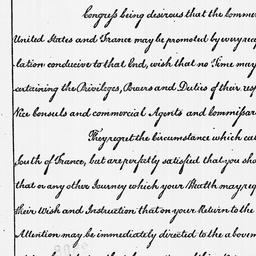 Congress being desirous that the comme
United States and France may be promoted by every reg
lation conducive to that End, wish that no Time may
certaining the Privileges, Powers and Duties of their resp
Vice Consuls and commercial Agents and Commissar
They regret the Circumstance which cal
South of France, but are perfectly satisfied that you sho
that or any other Journey which your Health may req
their Wish and Instruction that on your Return to the
Attention may be immediately directed to the abovem